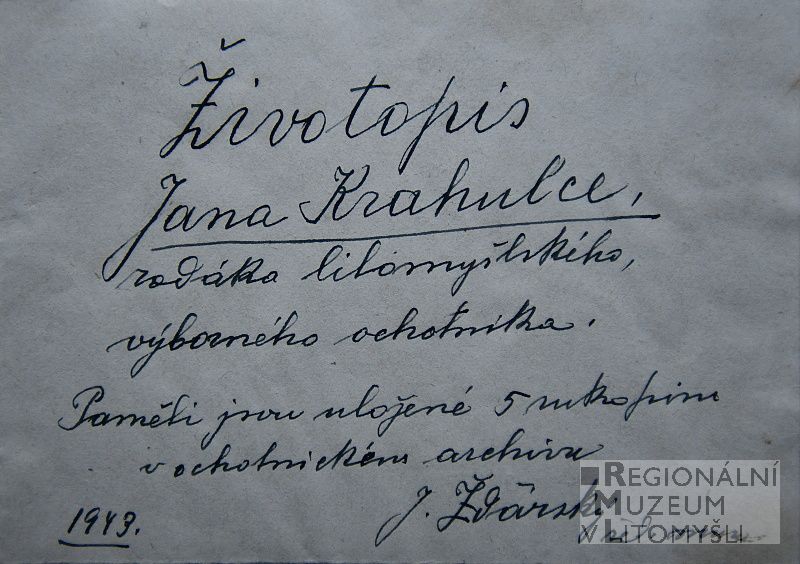 Životopis
Jana Krahulce,
rodáka litomyšlského,
výborného ochotníka.
Paměti jsou uložené 5 rukopisů
v ochotnickém archivu
J. Žďárský
1943.
REGIONÁLNÍ
MUZEUM
V LITOMYŠLI